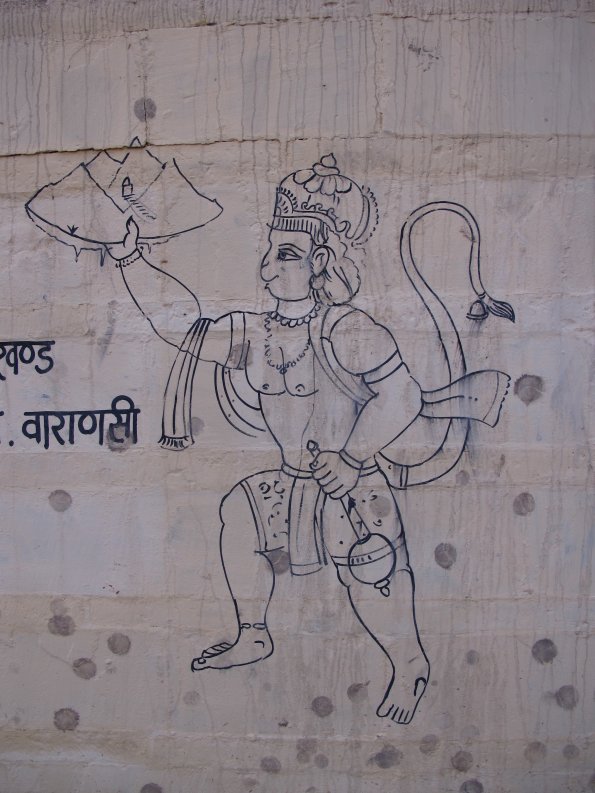 खण्ड
. वाराणसी